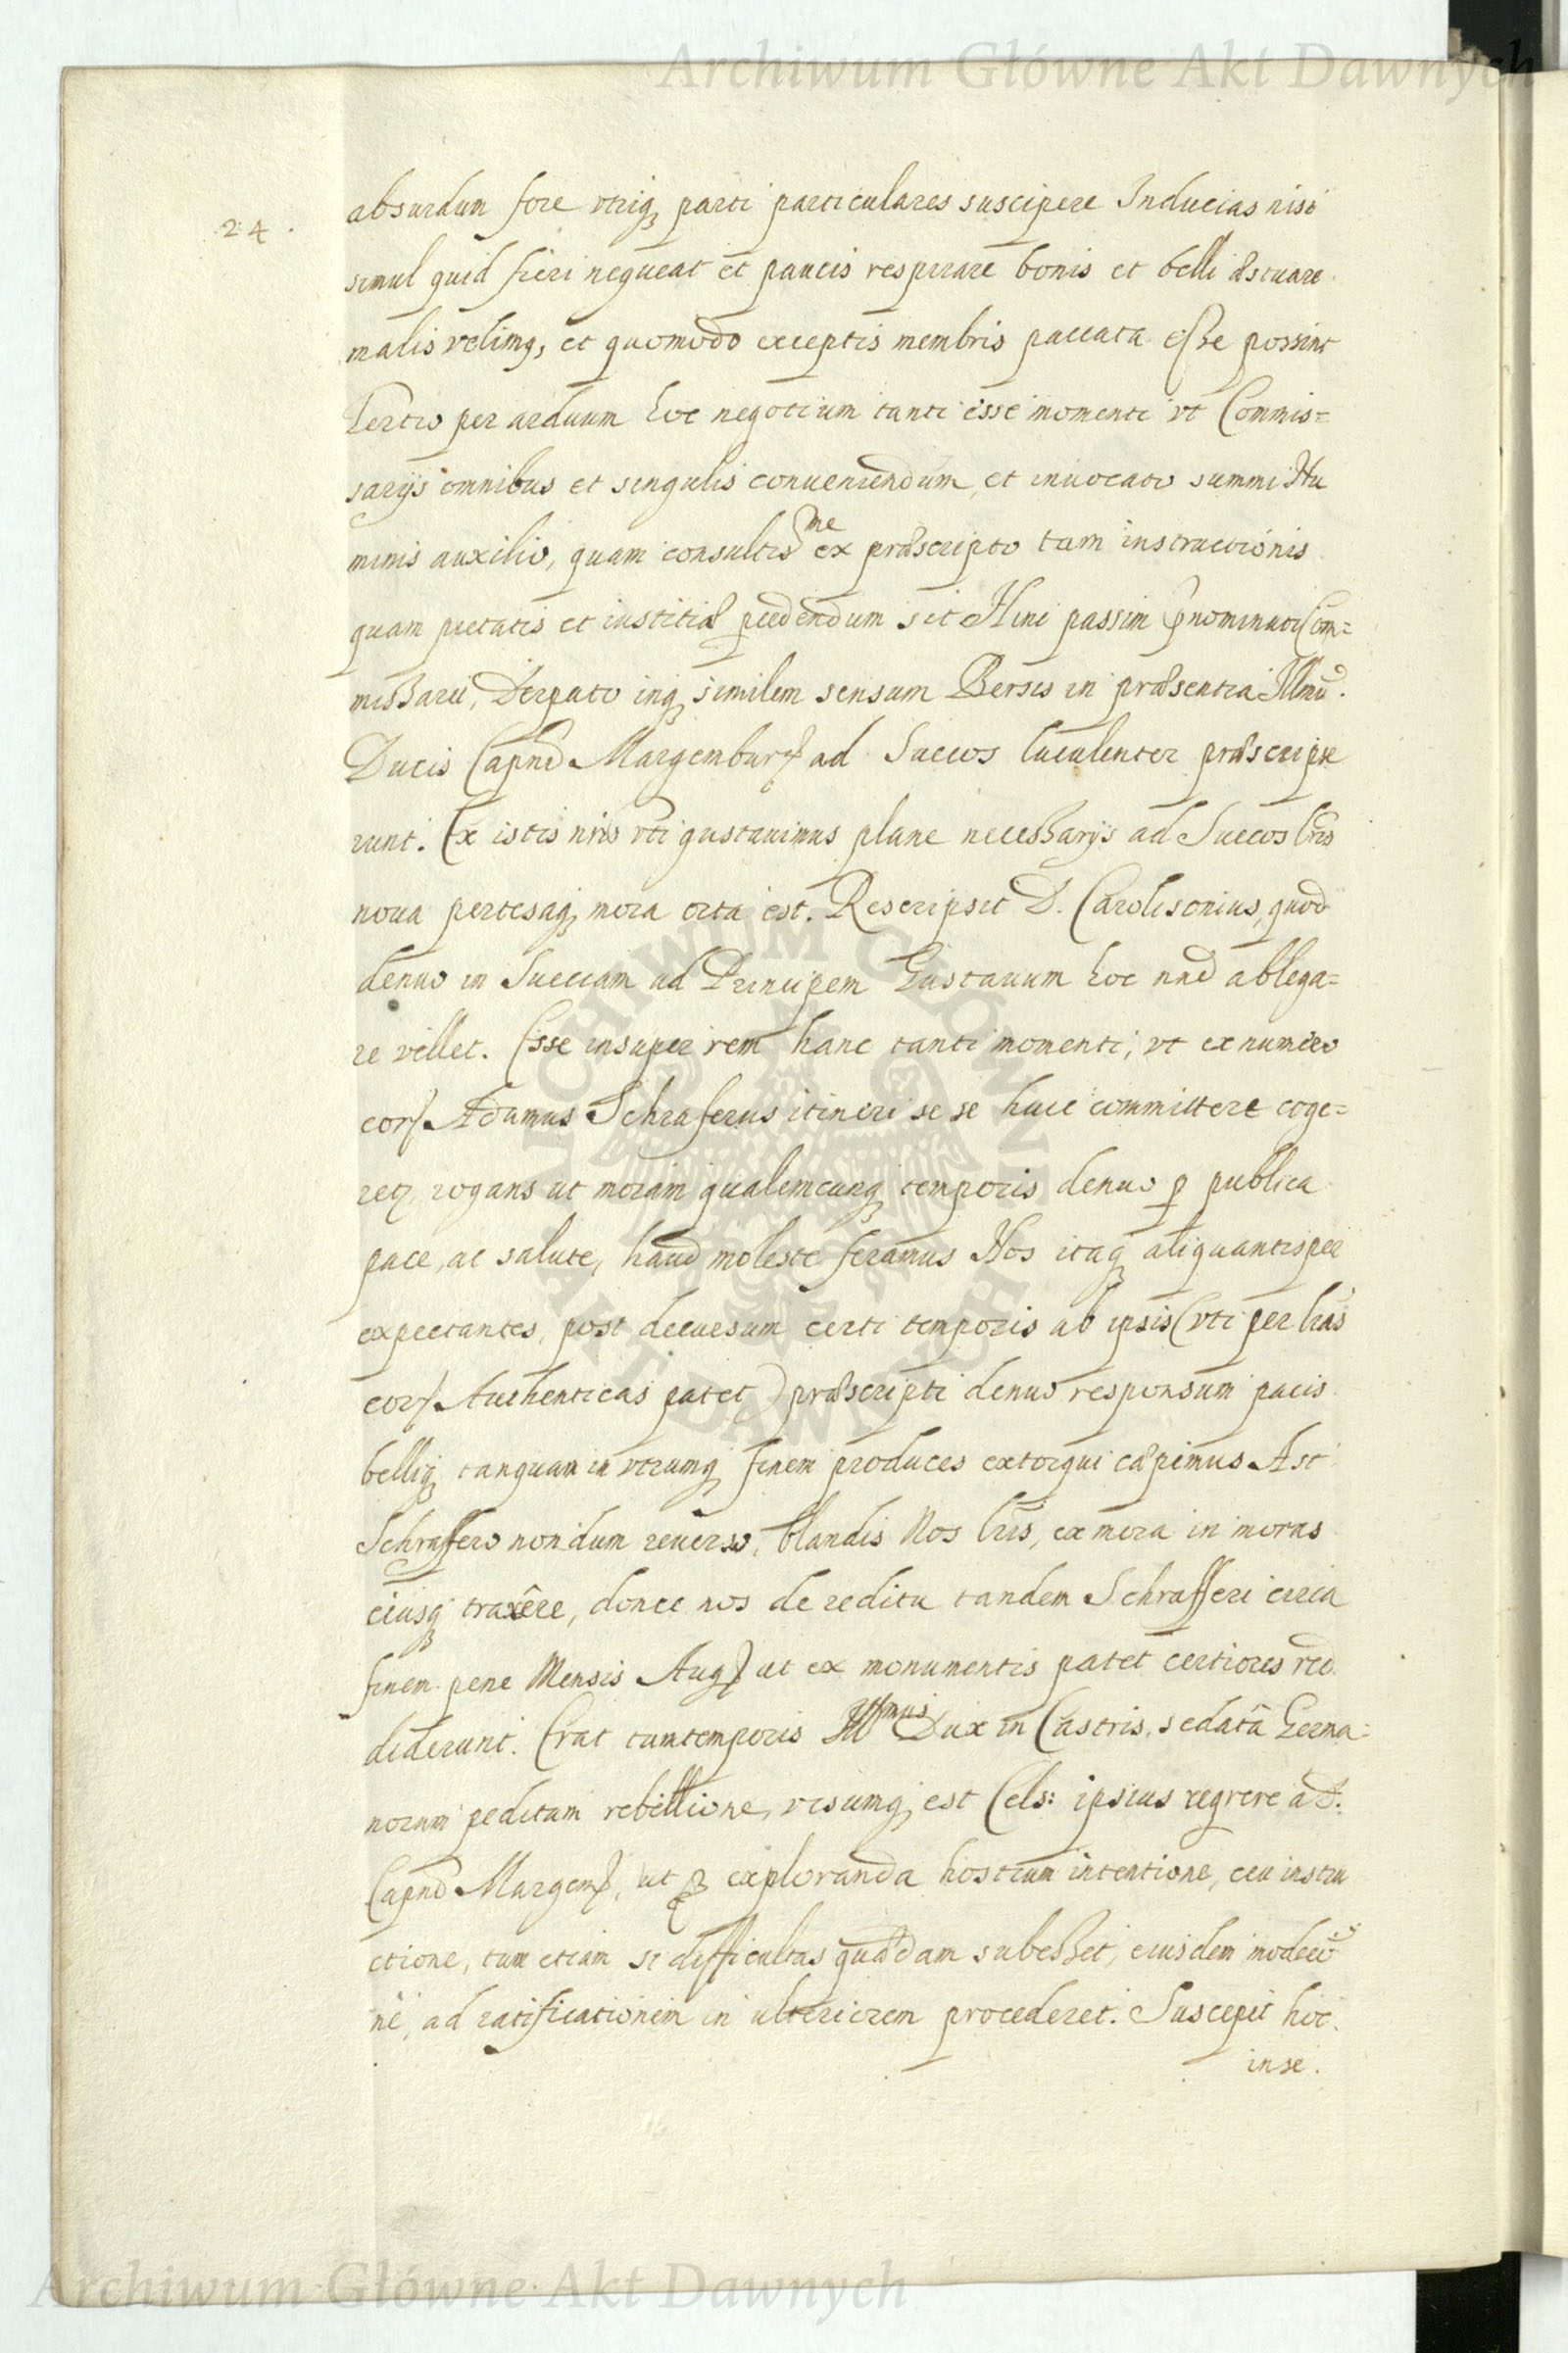 Archiwum Główne Akt Dawnych
24.
absurdum fore vtriq; parti particulares suscipere Inducias nisi
simul quid fieri nequeat et paucis respirare bonis et belli æstuare
malis velimq, et quomodo exceptis membris paccata esse possint
Tertio per arduum hoc negotium tanti esse momenti vt Commis=
sarijs omnibus et singulis conueniendum, et inuocato summi Nu
minis auxilio, quam consultis me ex præscripto tam instructionis
quam pietatis et iustitiæ pcedendum sit Hinc passim pnominati Com=
missarii, Derpato inq; similem sensum Bersis in præsentia Illmi.
Ducis Capnd Margemburg ad Suecos luculenter præscripse
runt. Ex istis nris vti gustauimus plane necessarijs ad Suecos lris
noua pertesaq; mora orta est. Rescripsit D. Carolisonius, quod
denuo in Sueciam ad Principem Gustauum hoc nnd ablega=
re vellet. Esse insuper rem hanc tanti momenti, vt ex numero
cor Adamus Schraferus itineri se se huic committere coge=
retr, rogans ut moram qualemcunq; temporis denuo p publica
pace, ac salute, haud moleste feramus Nos itaq; aliquantisper
expectantes, post decursum certi temporis ab ipsis (vti per lras
cor Authenticas patet) præscripti denuo responsum pacis
belliq; tanquam in vtrumq; finem produces extorqui cæpimus Ast
Schraffero nondum reuerso, blandis Nos lris, ex mora in moras
eiusq; traxêre, donec nos de reditu tandem Schrafferi circa
finem pene Mensis Aug ut ex monumentis patet certiores red
diderunt. Erat tumtemporis Illmus Dux in Castris, sedatâ Germa=
norum peditum rebellione, visumq; est Cels: ipsius reqrere a D.
Capnd Margem, ut p exploranda hostium intentione, ceu instru
ctione, tum etiam si difficultas quædam subesset, eiusdem modeo
ne, ad ratificationem in ulteriorem procederet. Suscepit hoc
in se.
ARCHIWUM GŁÓWNE AKT DAWNYCH
Archiwum Główne Akt Dawnych